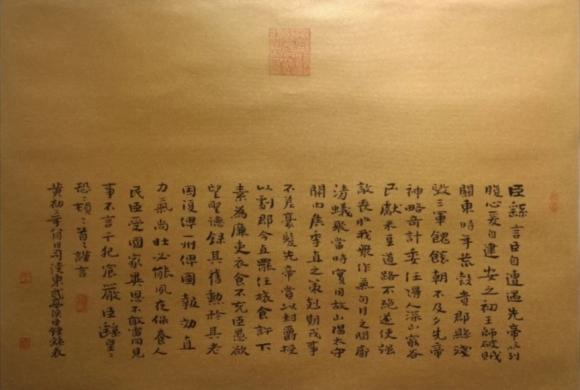 臣繇言臣自遭遇先帝忝列
腹心爰自建安之初王師破賊
關東時年荒穀貴郡縣殘
毀三軍餽饟朝不及夕先帝
神略奇計委任得人深山窮谷
民獻米豆道路不絕遂使強
敵喪膽我眾作氣旬月之間廓
清蟻聚當時實用故山陽太守
關內侯季直之策剋期成事
不差豪髮先帝賞以封爵授
以劇郡今直罷任旅食許下
素為廉吏衣食不充臣愚欲
望聖德錄其舊勳矜其老
困復俾一州俾圖報效直
力氣尚壯必能夙夜保養人
民臣受國家異恩不敢雷同見
事不言干犯宸嚴臣繇皇〻
恐〻頓〻首〻謹言
黃初二年八月日司徒東武亭侯臣鍾繇表